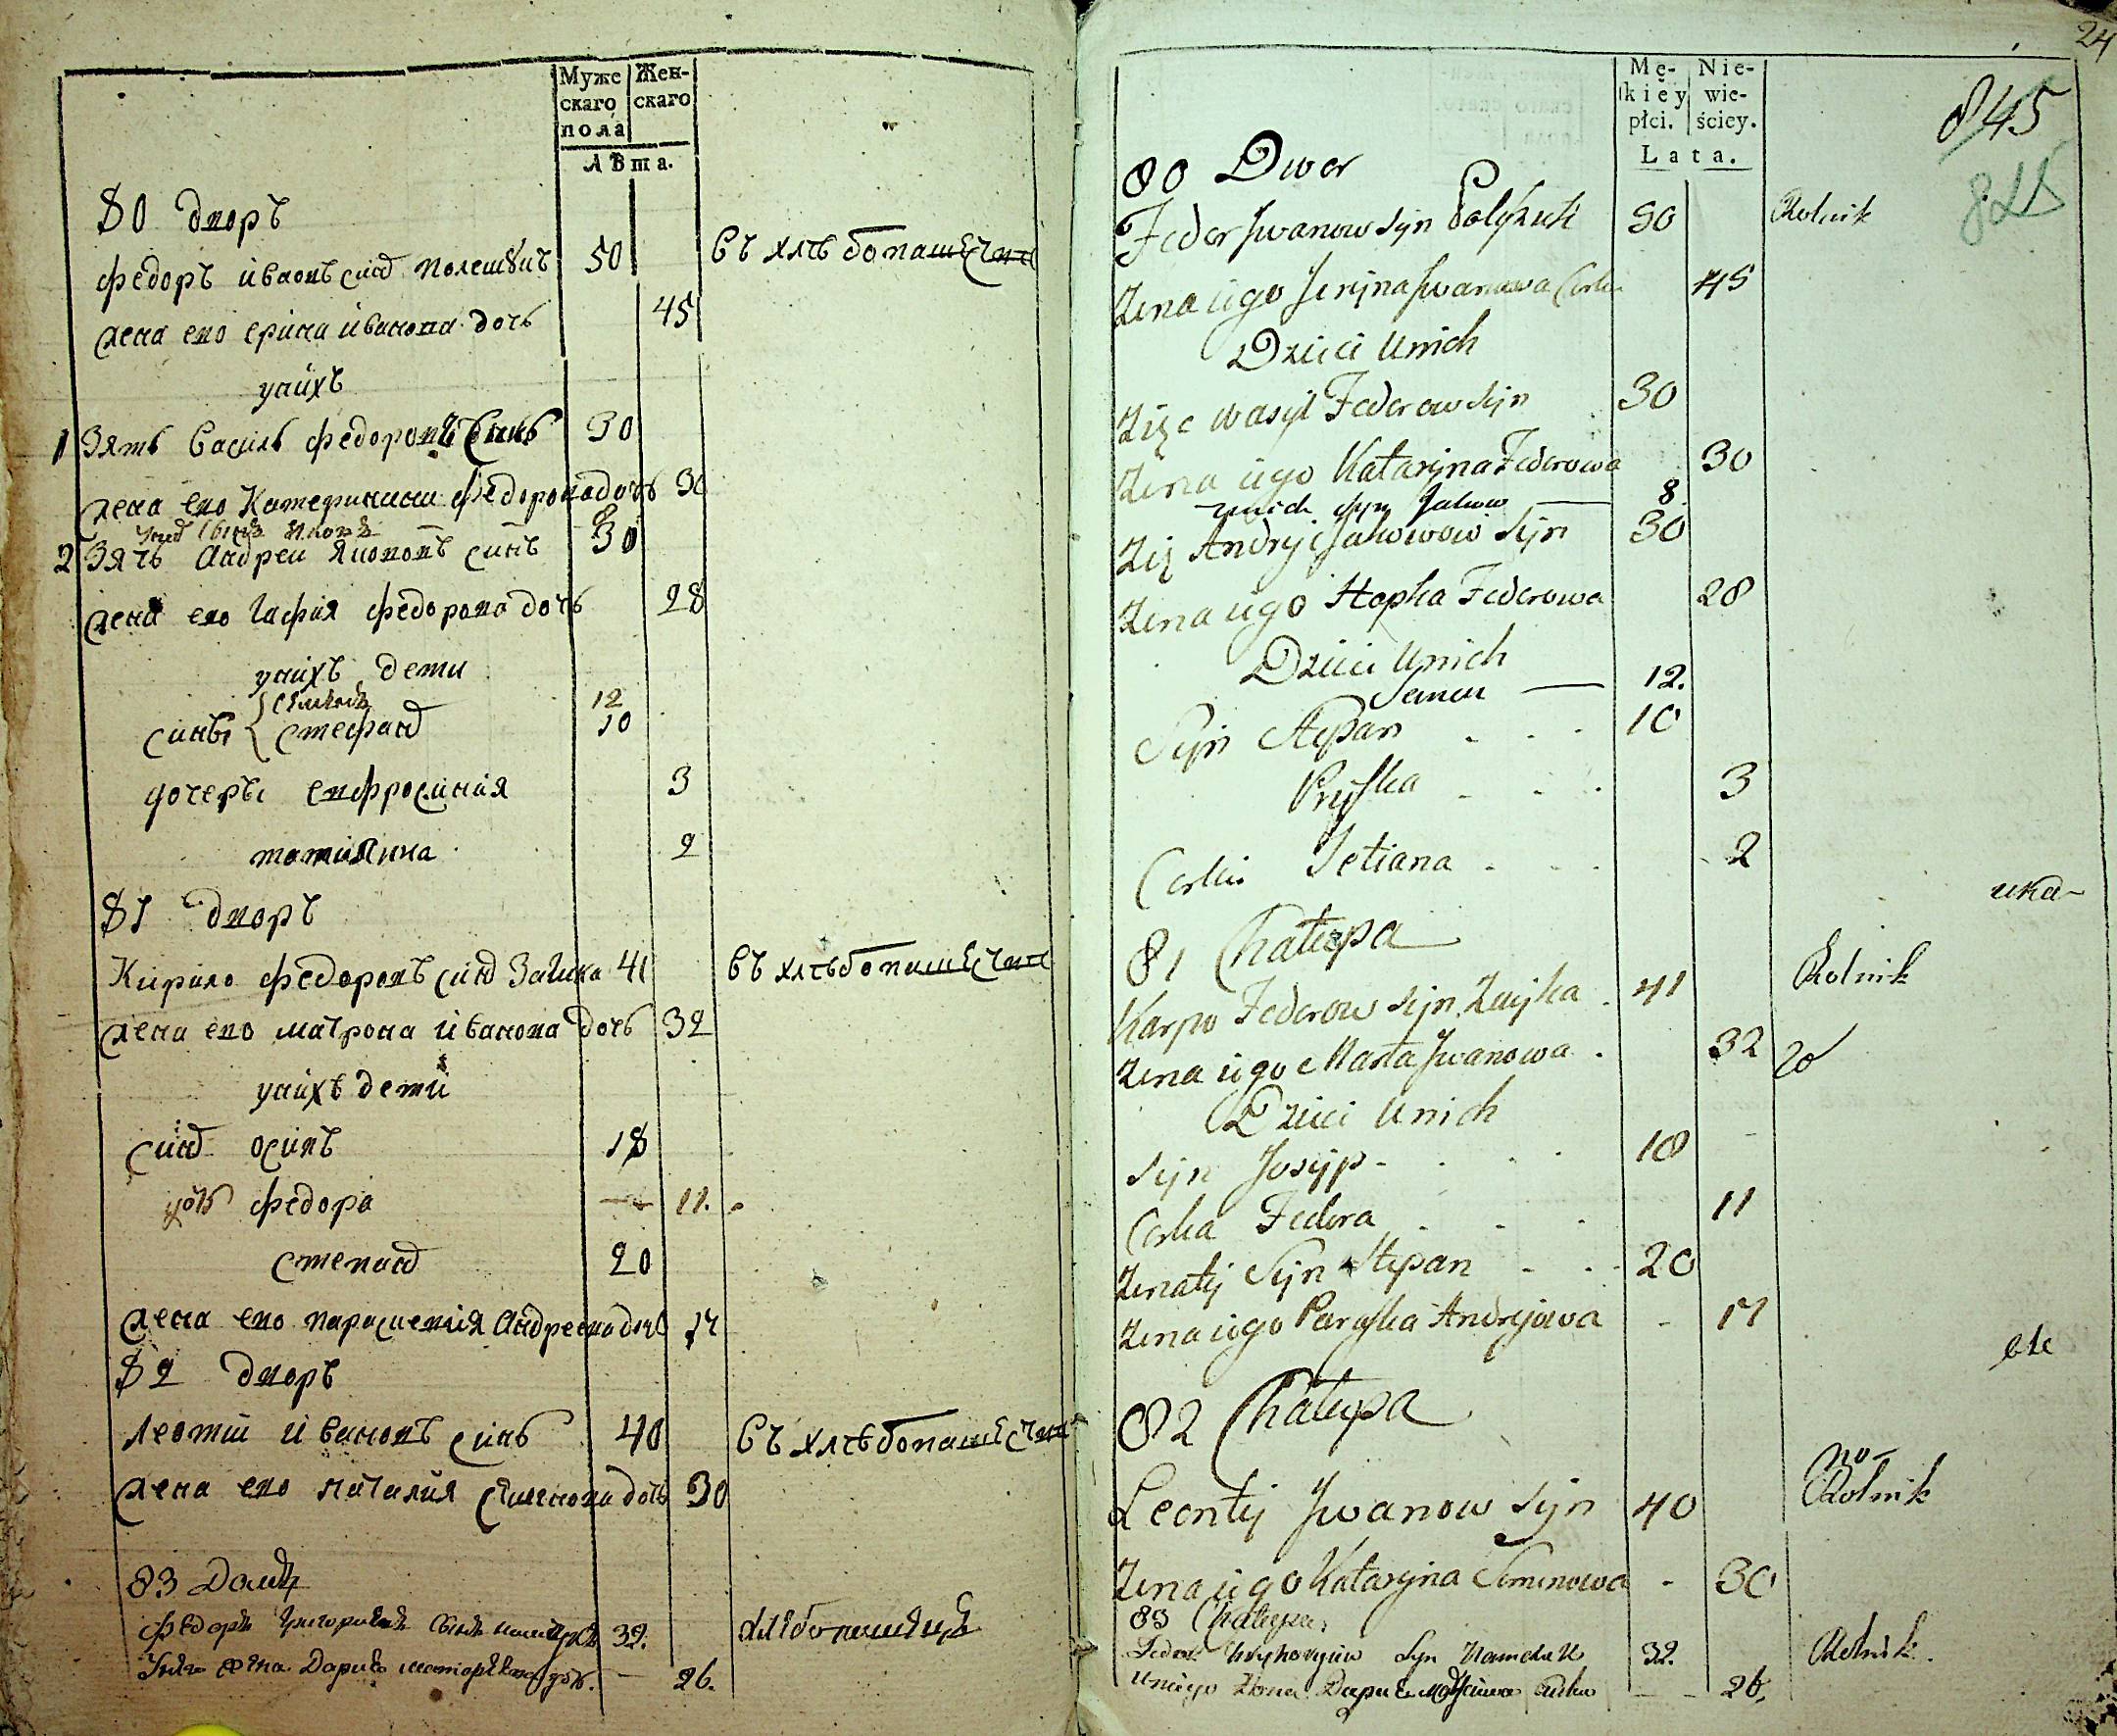 Муже
скаго
пола
Жен-
скаго
Лѣта.
80 дворъ
федоръ ивановъ синъ 50 въ хлѣбопашестве
жена его ерина иванова дочь 45
у нихъ
1 Зять василь федоровъ синъ 30
жена его Катерина федорова дочь 30
8
2 Зять андреи якововъ синъ 30
жена его гафия федорова дочь 28
у нихъ дети
12
сини стефанъ 10
дочери ефросиния 3
татияна 2
81 дворъ
Кирило федоровъ синъ Заика 41 въ хлѣбопашестве
жена его матрона иванова дочь 32
у нихъ дети
синъ осипъ 18
дочь федора — 11.
степанъ 20
жена его параскевия андреева дочь 17
82 дворъ
леотий ивановъ синъ 40 въ хлѣбопашестве
жена его наталия семенова дочь 30
83 Домъ
Федоръ Григориевъ синъ 32.
жена Дария дочь. — 26.
24
Mę-
skiey
płci.
Nie-
wie-
ściey.
Lata.
845
80 Dwor
Fedor Jwanow syn 50 Rolnik
Zena iego Jeryna Jwanowa Corka 45
Dzieci U nich
Zięc Wasyl Fedorow syn 30
Zena iego Kataryna Fedorowa 30
U nich syn Jakow — 8.
Zię Andryi Jakowow Syn 30
Zena iego Hapka Fedorowa 28
Dzieci U nich
Semen — 12.
Syn Stepan 10
Pryska 3
Corki Tetiana 2
81 Chałupa
Karpo Fedorow syn Zaijka 41 Rolnik
Zena iego Marta Jwanowa 32
Dzieci U nich
Syn Josyp 18
Corka Fedora 11
Zonatÿ Syn Stepan 20
Zena iego Paraska Andrejowa 17
82 Chałupa
Leontÿ Jwanow Syn 40 Rolnik
Zena iego Kataryna Semenowa 30
83 Chałupa
Fedor Hryhoryiow Syn 32. Rolnik.
U niego Zona Darya 26.